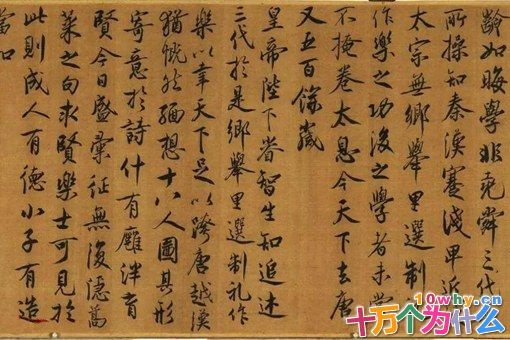 齡如晦學非堯舜三代
所操知秦漢蹇淺卑近
太宗無鄉舉里選制
作樂之功後之學者未嘗
不掩卷太息今天下去唐
又五百餘歲
皇帝陛下睿智生知追述
三代於是鄉舉里選制礼作
樂以幸天下足以跨唐越漢
猶慨然緬想十八人圖其形
寄意於詩什有廱泮育
賢今日盛彙征無復隱蒿
萊之句求賢樂士可見於
此則成人有德小子有造
當如
10why.cn
十万个为什么